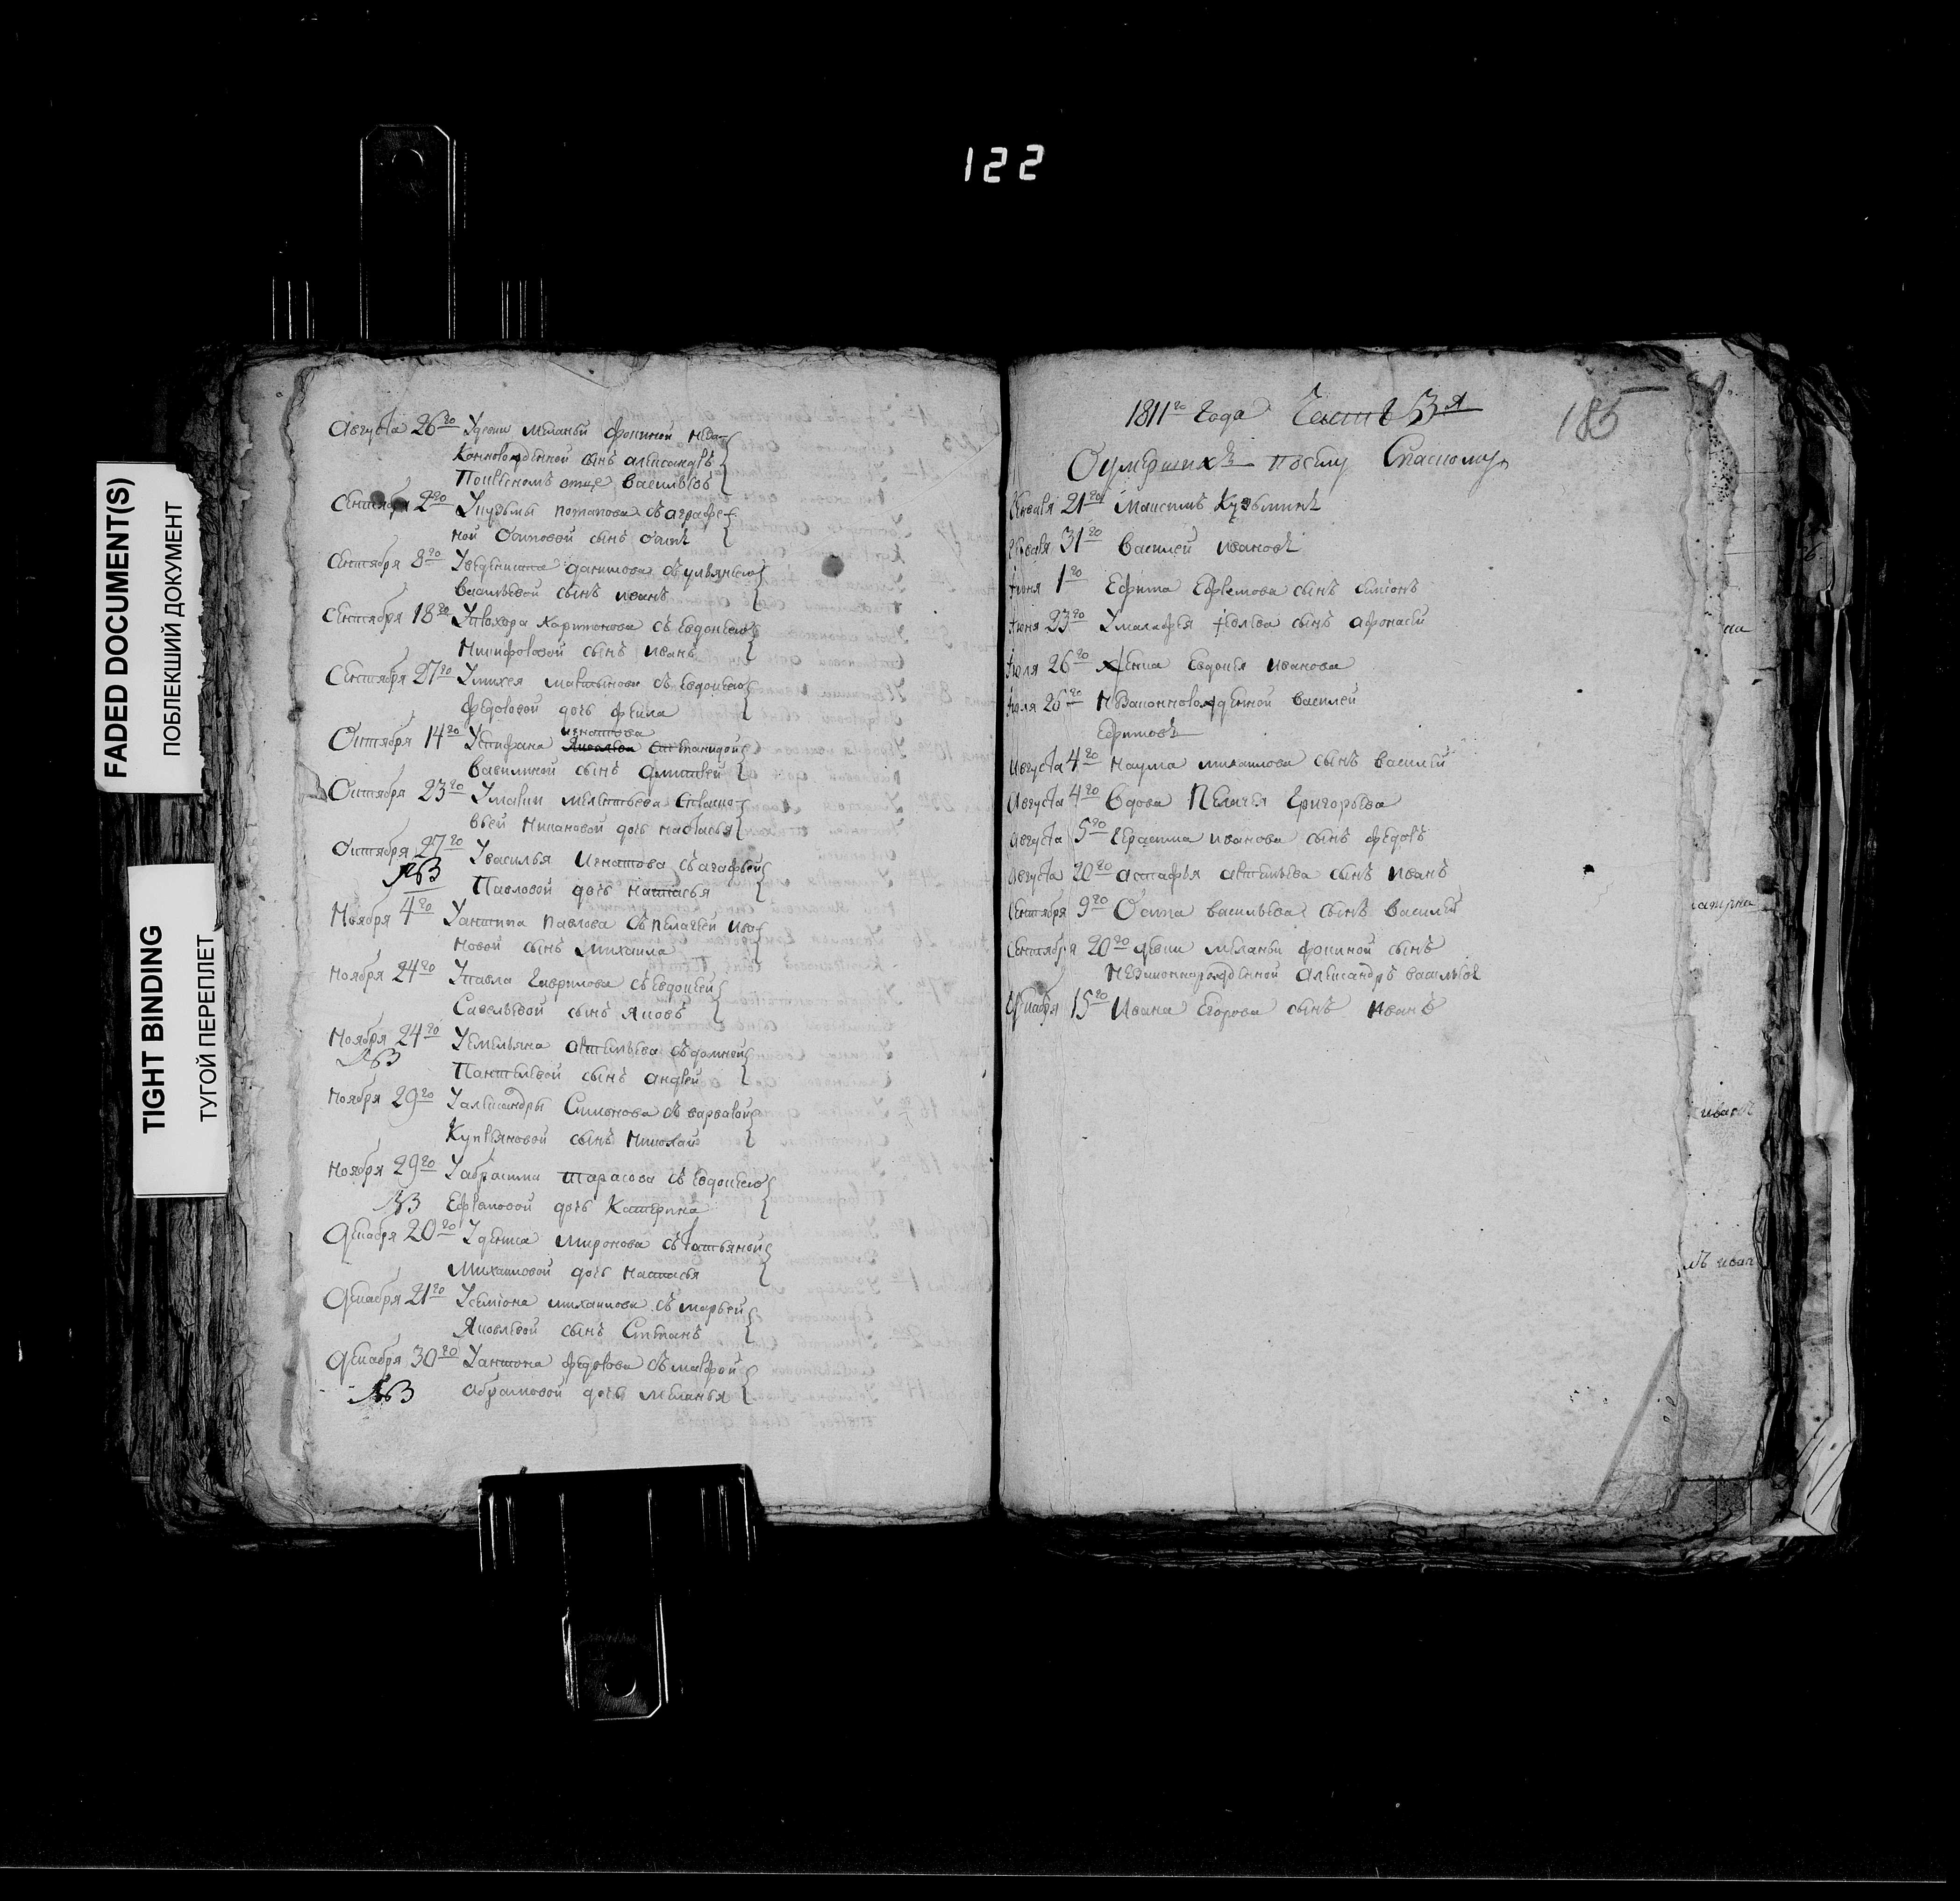 122
FADED DOCUMENT(S)
ПОБЛЕКШИЙ ДОКУМЕНТ
TIGHT BINDING
ТУГОЙ ПЕРЕПЛЕТ
Августа 26го У девки Меланьи Фокиной неза-
коннорожденной сынъ александръ
Покрестномъ отце васильевъ
Сентября 2го У кузьмы потапова съ аграфе-
ной Осиповой сынъ
Сентября 8го данилова съ ульяньею
васильевой сынъ иванъ
Сентября 18го У прохора харитонова съ Евдокеею
Никифоровой сынъ иванъ
Сентября 27го У михея мартынова съ Евдокеею
Федоровой дочь фекла
Октября 14го У Стефана игнатова Яковлева степанидой
вавилиной сынъ Дмитрей
Октября 23го У макии мелентьева спраско-
вьей Никановой дочь настасья
Октября 27го У василья Игнатова съ агафьей
NB Павловой дочь настасья
Ноября 4го У антипа павлова съ пелагьей ива-
новой сынъ михаила
Ноября 24го У павла гаврилова съ Евдокией
Савельевой сынъ Яковъ
Ноября 24го У Емельяна артемьева съ домней
NB Пантелевой сынъ андрей
Ноября 29го У александры Симонова съ варварой
Куприяновой сынъ Николай
Ноября 29го У абрама тарасова съ Евдокеею
NB Ефремовой дочь Катерина
Декабря 20го У дениса миронова съ татьяной
Михаиловой дочь настасья
Декабря 21го У семиона михаилова съ марьей
Яковлевой сынъ Степанъ
Декабря 30го У антона федорова съ марфой
NB абрамовой дочь меланья
1811го года Часть 3я
185
О умершихъ по селу Спаскому
Генваря 21го Максимъ Кузьминъ
Генваря 31го василей ивановъ
Июня 1го Ефима Ефремова сынъ симионъ
Июня 23го У малафья сынъ афонасей
Июля 26го Евдокея иванова
Июля 26го Незаконнорожденной василей
Ефимовъ
Августа 4го наума михаилова сынъ василей
Августа 4го вдова Пелагея григорьева
Августа 5го герасима иванова сынъ федоръ
Августа 20го астафья артемьева сынъ иванъ
Сентября 9го Осипа васильева сынъ василей
Сентября 20го девки меланьи фокиной сынъ
незаконнорожденной Александръ васильевъ
Декабря 15го Ивана Егорова сынъ иванъ